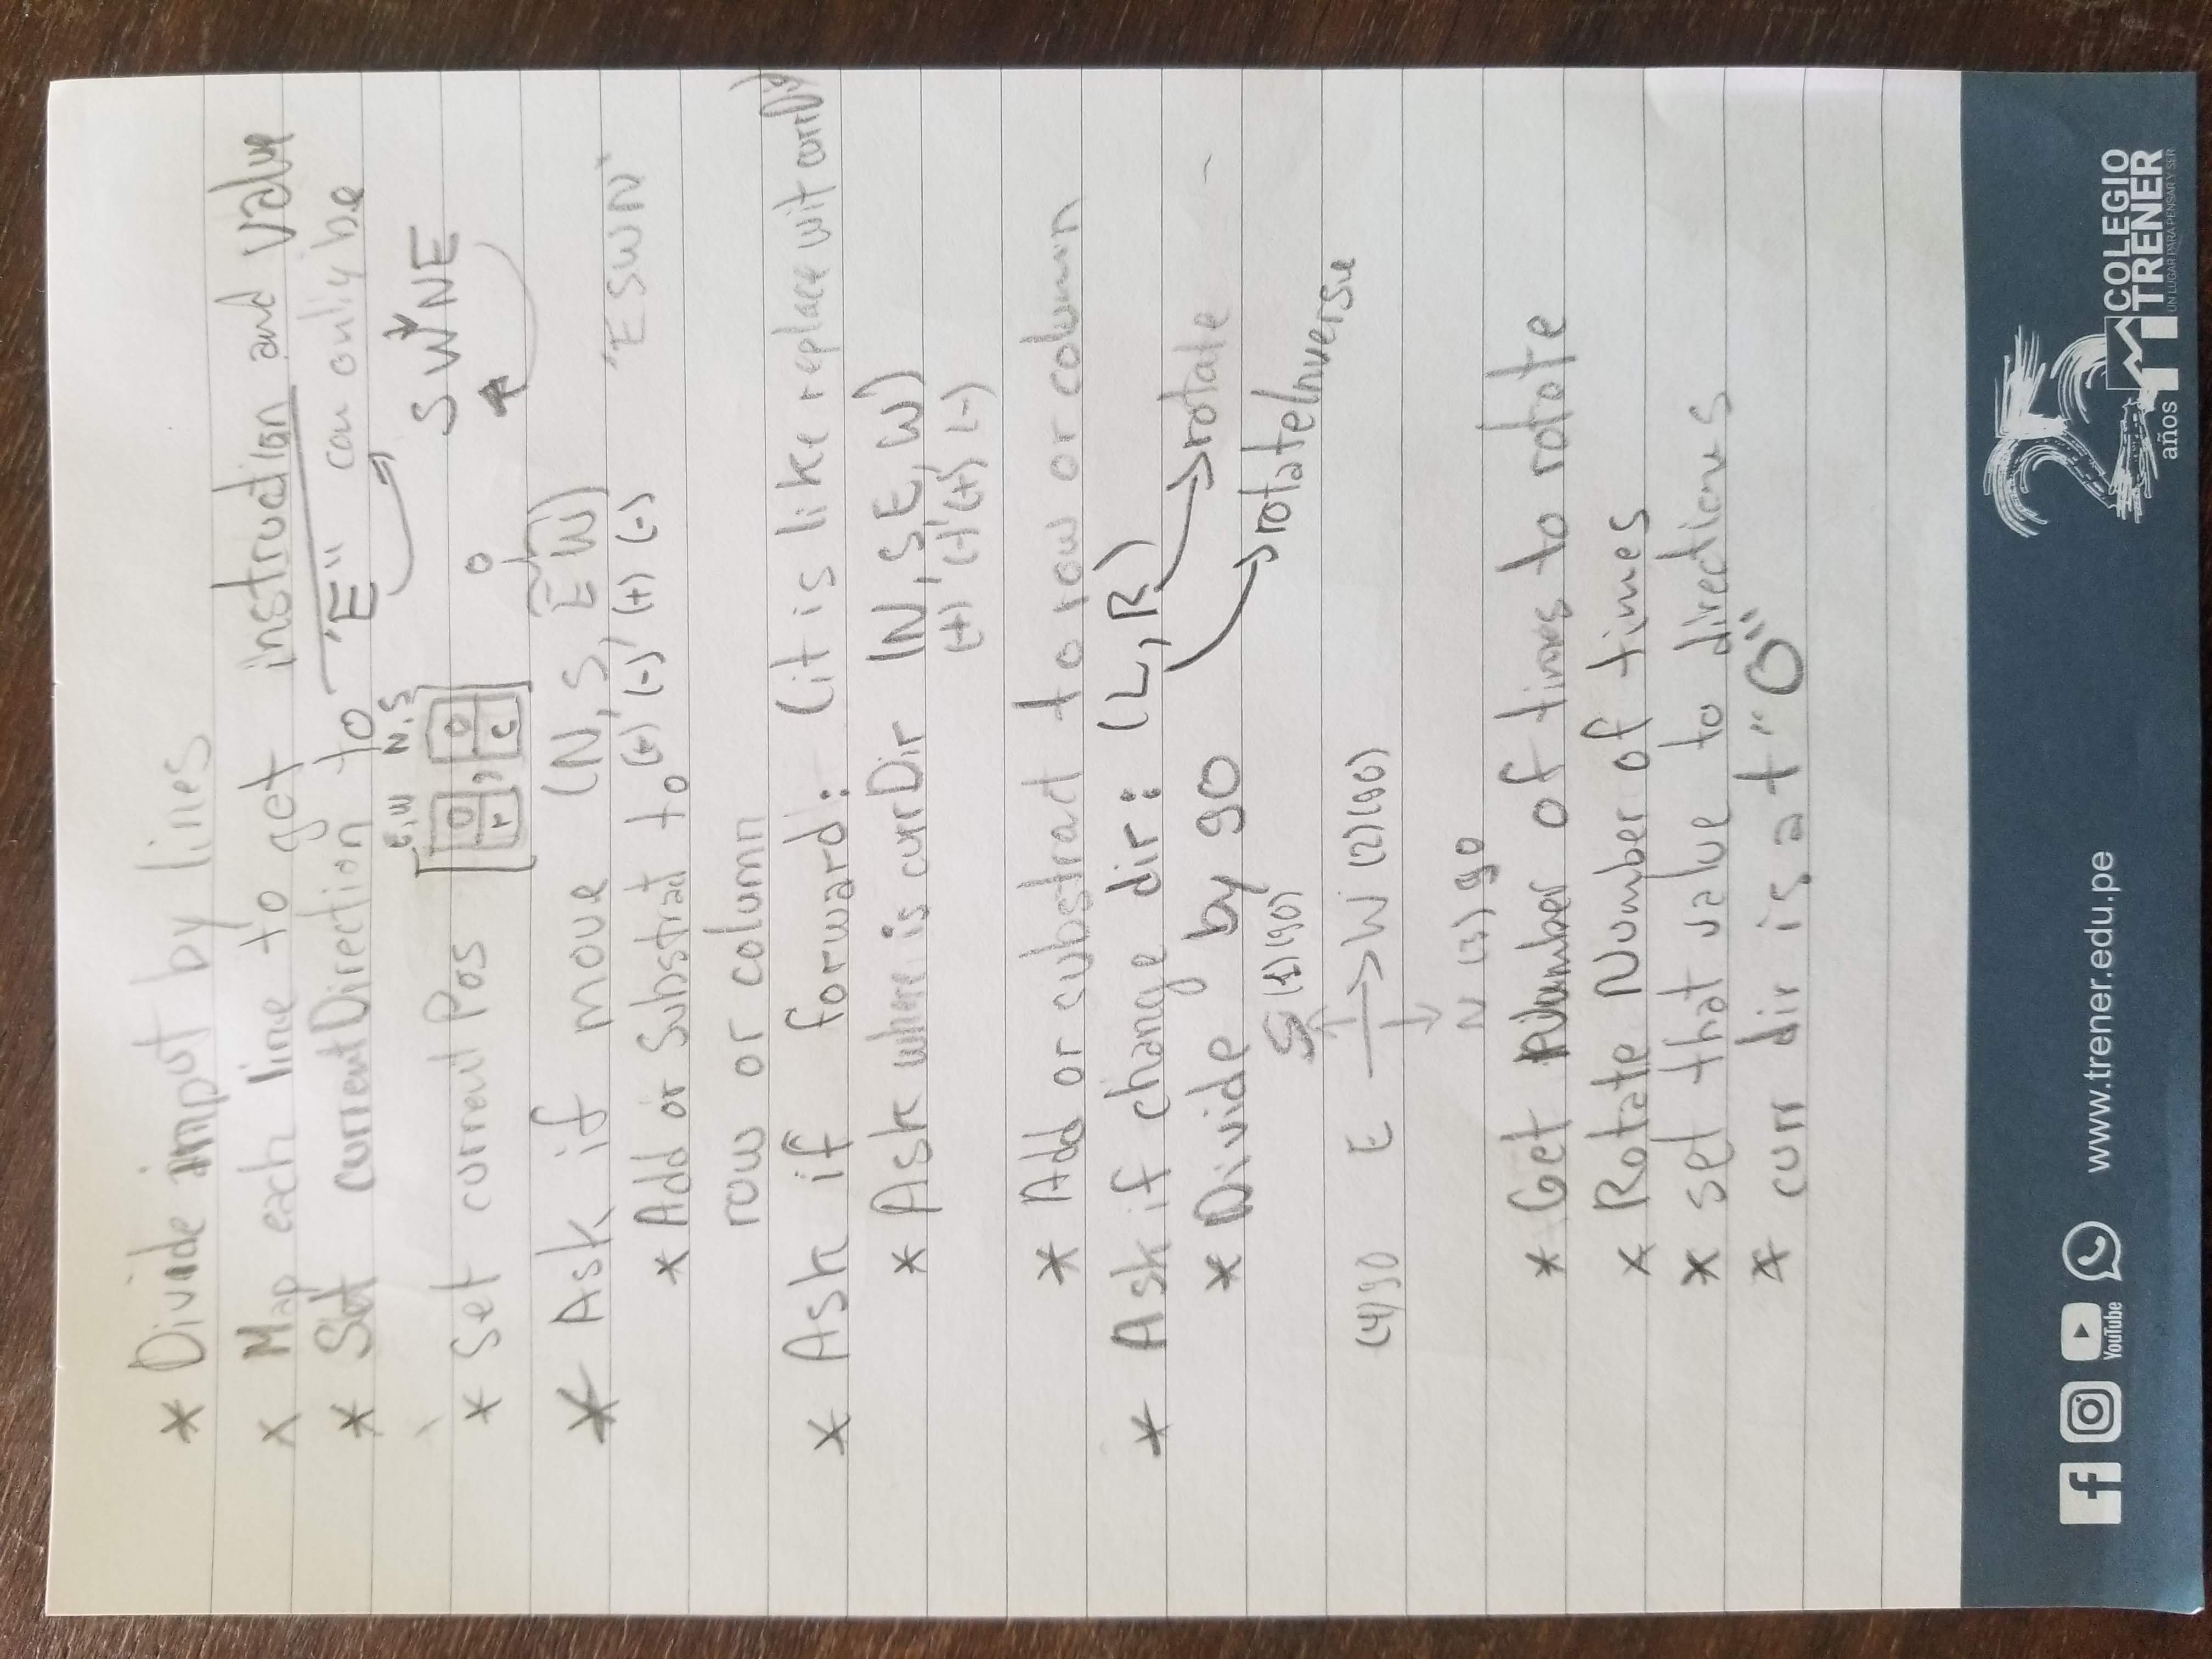 * Divide input by lines
* Map each line to get instruction and value
* Set currentDirection to "E" can only be
E,W N,S
SWNE
* Set currentPos [0, 0]
r c
0
* Ask if move (N, S, E W)
(+) (-) (+) (-)
"ESWN"
* Add or Substract to
row or column
* Ask if forward: (it is like replace wit currDir)
* Ask where is currDir (N, S, E, W)
(+) (-) (+) (-)
* Add or substract to row or column
* Ask if change dir: (L, R)
rotate
* Divide by 90
rotateInverse
S (1)(90)
(4)90 E W (2)(90)
N (3) 90
* Get Number of times to rotate
* Rotate Number of times
* set that value to directions
* curr dir is at "0"
YouTube
www.trener.edu.pe
25 años
COLEGIO
TRENER
UN LUGAR PARA PENSAR Y SER